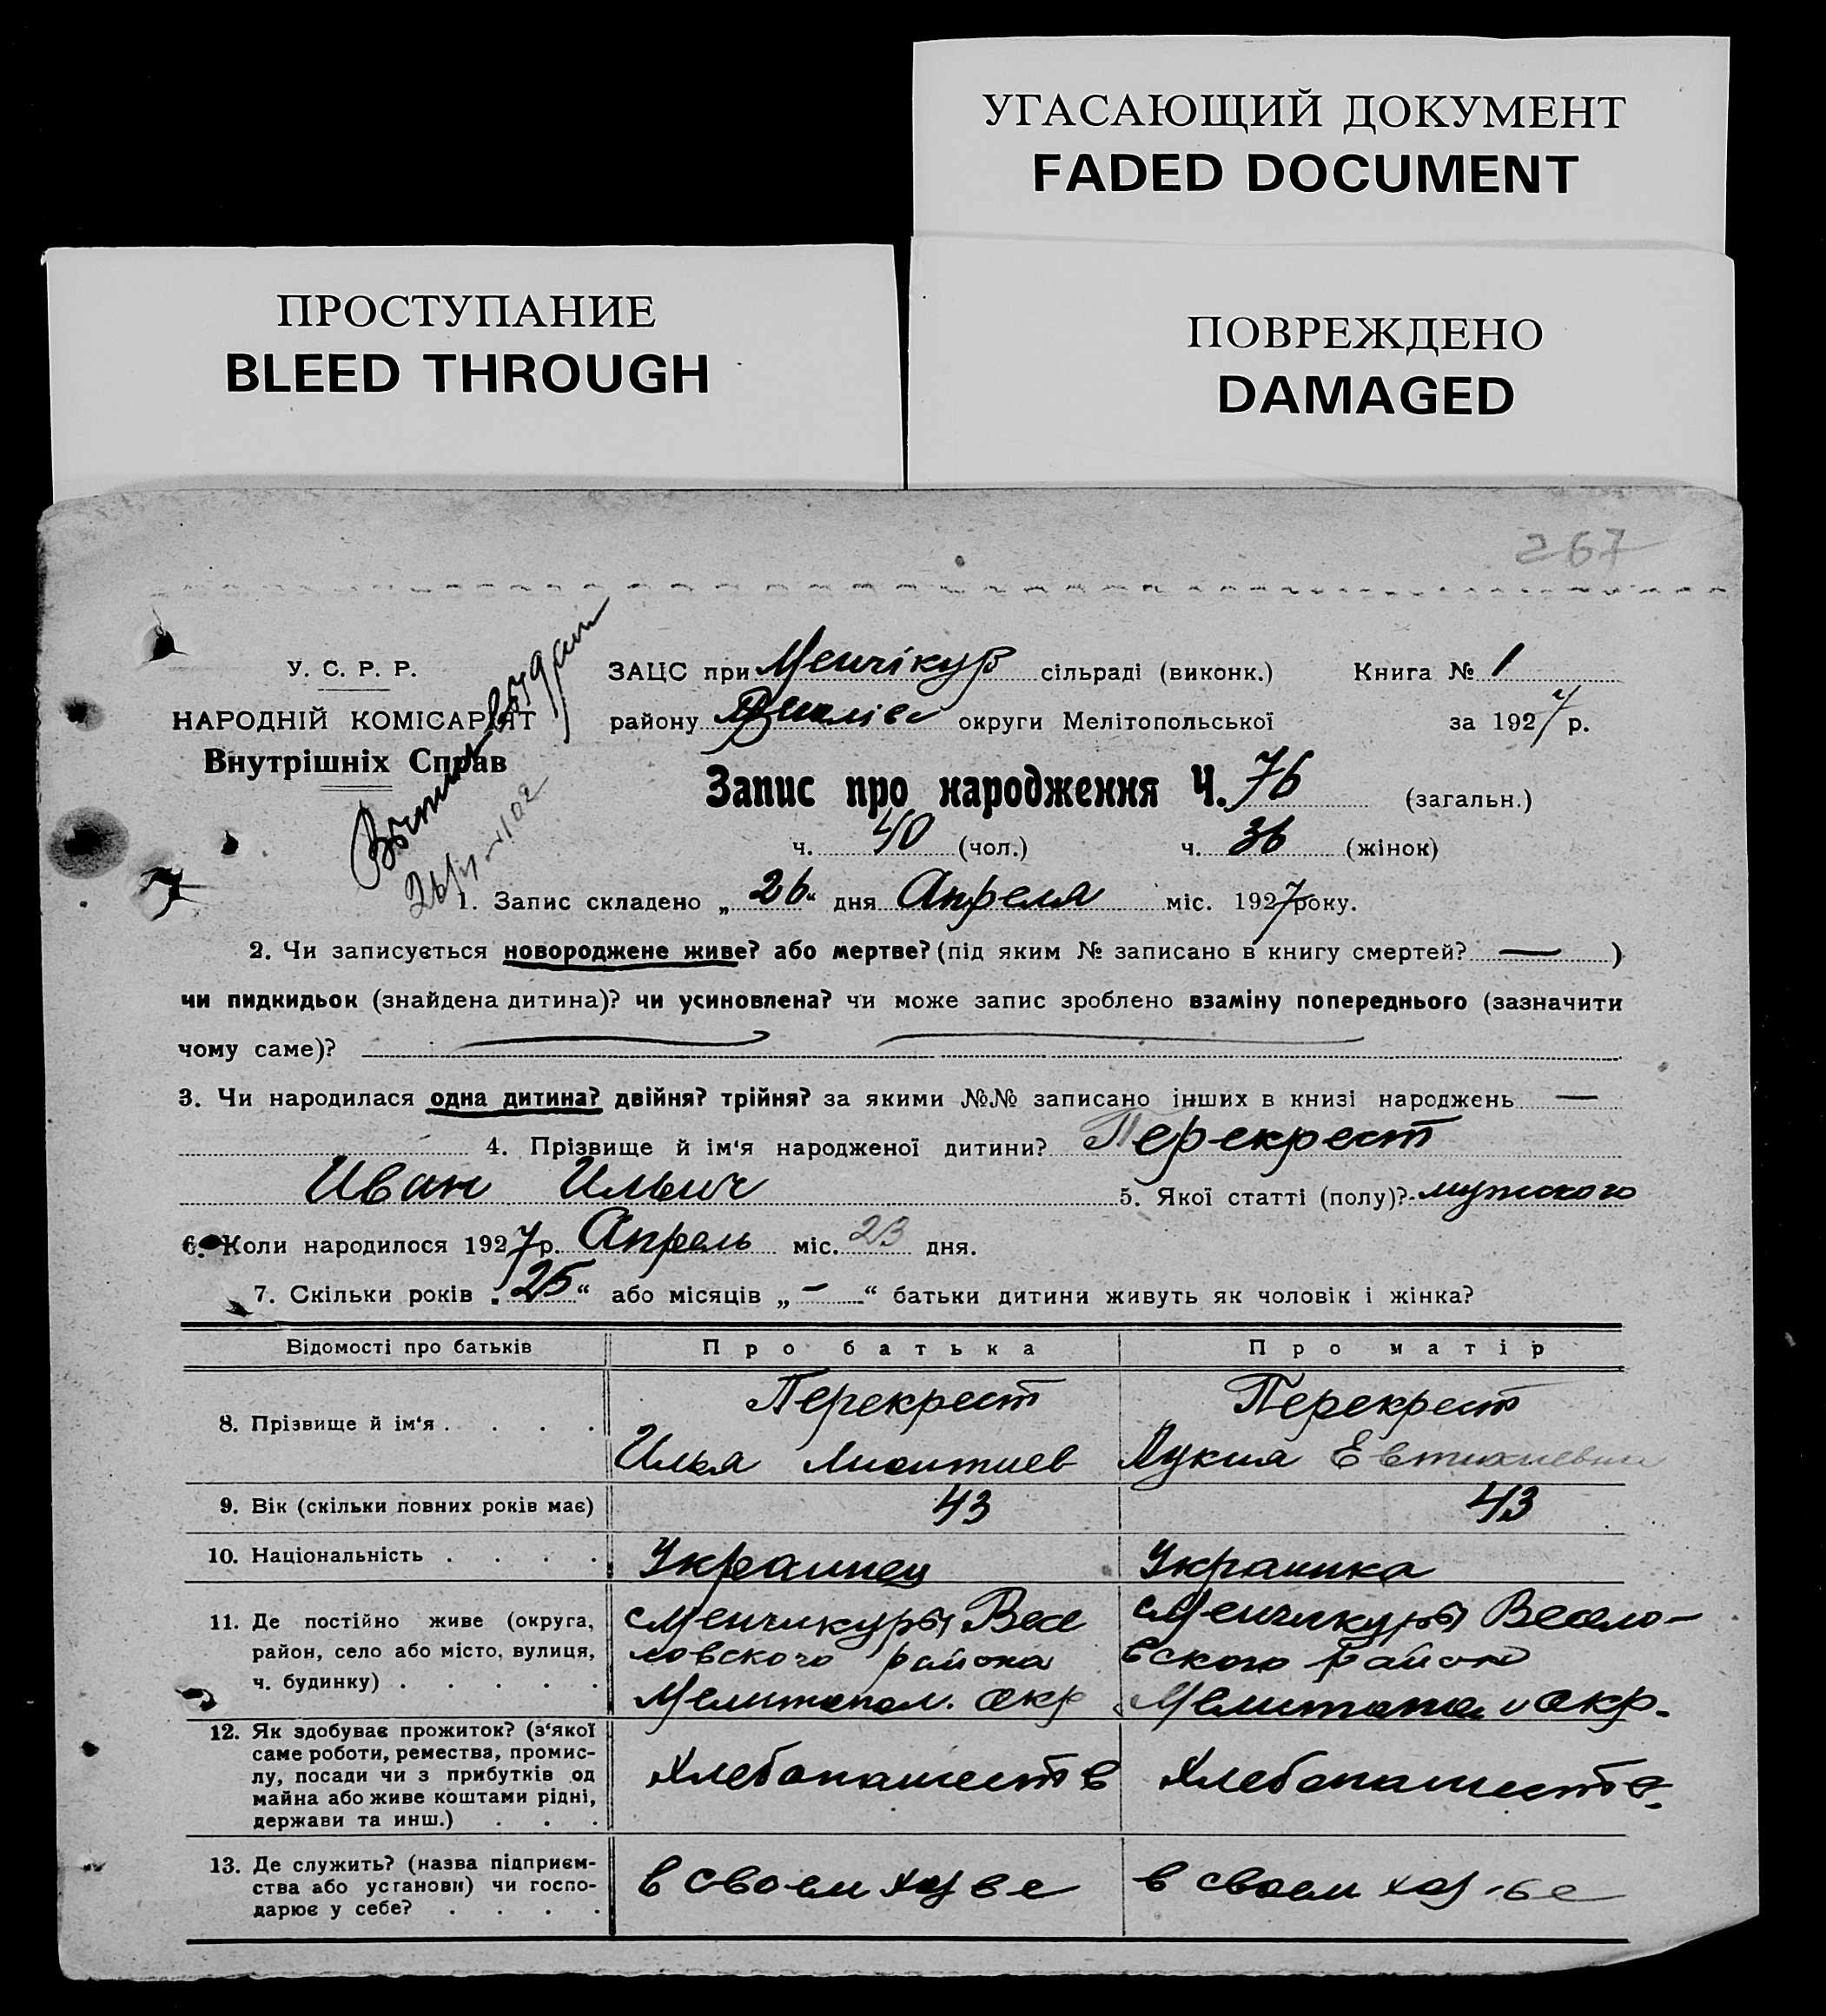 УГАСАЮЩИЙ ДОКУМЕНТ
FADED DOCUMENT
ПРОСТУПАНИЕ
BLEED THROUGH
ПОВРЕЖДЕНО
DAMAGED
267
У. С. Р. Р.
НАРОДНІЙ КОМІСАРІЯТ
Внутрішніх Справ
ЗАЦС при Менчікур сільраді (виконк.) Книга № 1
району округи Мелітопольської за 1927 р.
Запис про народження Ч. 76 (загальн.)
ч. 40 (чол.) ч. 36 (жінок)
1. Запис складено „ 26 “ дня Апреля міс. 1927 року.
2. Чи записується новороджене живе? або мертве? (під яким № записано в книгу смертей? — )
чи пидкидьок (знайдена дитина)? чи усиновлена? чи може запис зроблено взаміну попереднього (зазначити
чому саме)?
3. Чи народилася одна дитина? двійня? трійня? за якими №№ записано інших в книзі народжень —
4. Прізвище й ім‘я народженої дитини? Перекрест
Иван Ильич 5. Якої статті (полу)? мужского
6. Коли народилося 1927 р. Апрель міс. 23 дня.
7. Скільки років „ 25 “ або місяців „ – “ батьки дитини живуть як чоловік і жінка?
Відомості про батьків Про батька Про матір
8. Прізвище й ім‘я . . . . Перекрест Перекрест
Илья Леонтиев Лукия Евтихиевна
9. Вік (скільки повних років має) 43 43
10. Національність . . . . Украинец Украинка
11. Де постійно живе (округа, Менчикуры Весе Менчикуры Весело-
район, село або місто, вулиця, ловского района вского район
ч. будинку) . . . . . Мелитопол. окр Мелитопол окр.
12. Як здобуває прожиток? (з‘якої
саме роботи, ремества, промис-
лу, посади чи з прибутків од Хлебопашеств Хлебопашеств
майна або живе коштами рідні,
держави та инш.) . . .
13. Де служить? (назва підприєм-
ства або установи) чи госпо- в своем хоз ве в своем хоз-ве
дарює у себе? . . . .